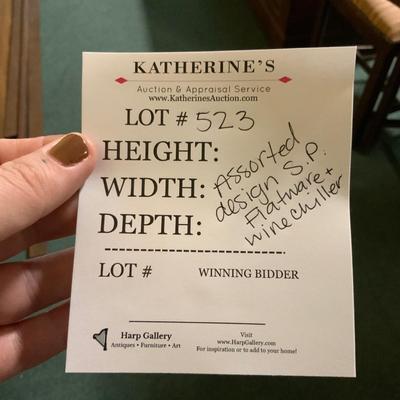 KATHERINE'S
Auction & Appraisal Service
www.KatherinesAuction.com
LOT # 523
HEIGHT:
WIDTH:
DEPTH:
Assorted
design S.P.
Flatware +
wine chiller
LOT #
WINNING BIDDER
Harp Gallery
Antiques • Furniture • Art
Visit
www.HarpGallery.com
For inspiration or to add to your home!